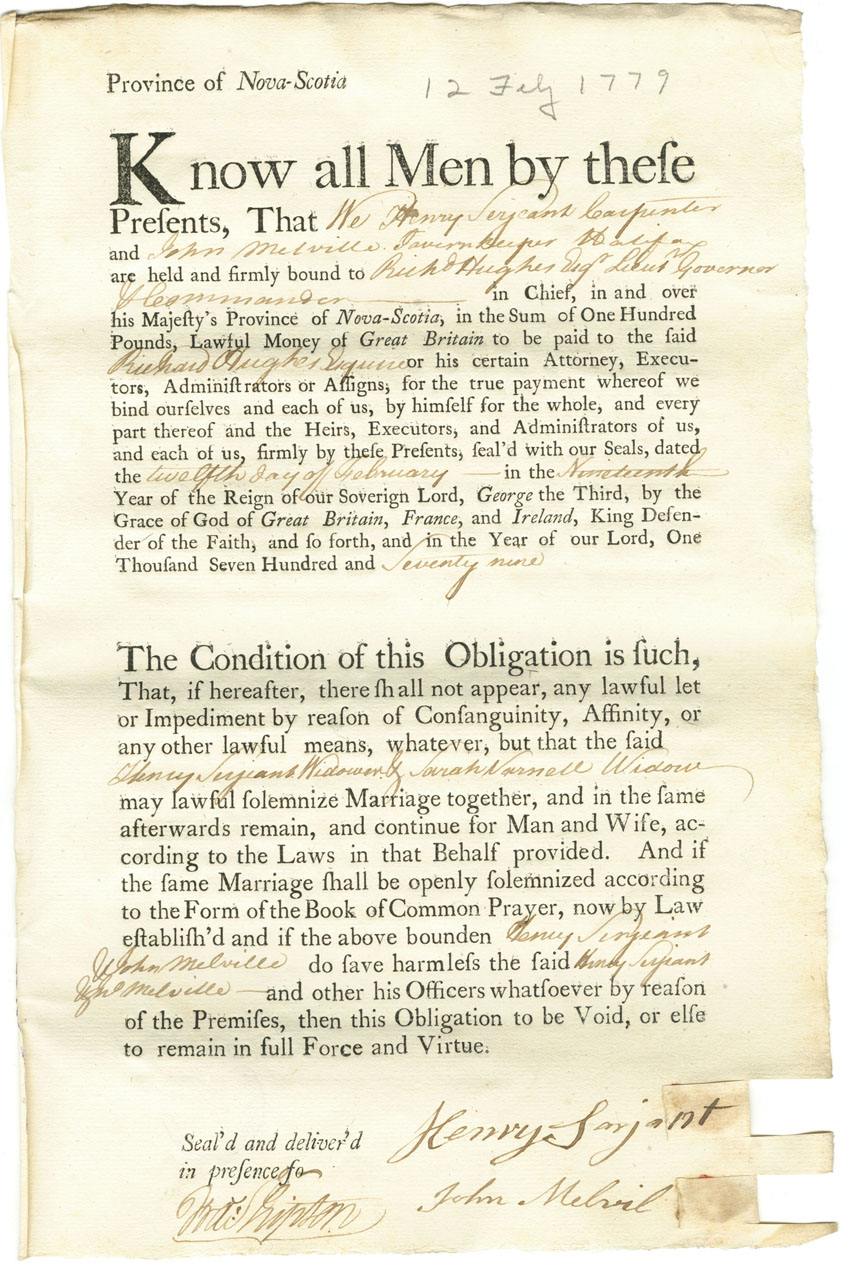 Province of Nova-Scotia
12 Feby 1779
Know all Men by theſe
Preſents, That We Henry Serjeant Carpenter
and John Melville Tavernkeeper Halifax
are held and firmly bound to Richd Hughes Esqr Lieut Governor
& Commander in Chief, in and over
his Majeſty's Province of Nova-Scotia, in the Sum of One Hundred
Pounds, Lawful Money of Great Britain to be paid to the ſaid
Richard Hughes Esquire or his certain Attorney, Execu-
tors, Adminiſtrators or Aſſigns, for the true payment whereof we
bind ourſelves and each of us, by himſelf for the whole, and every
part thereof and the Heirs, Executors, and Adminiſtrators of us,
and each of us, firmly by theſe Preſents, ſeal'd with our Seals, dated
the twelfth day of February — in the Nineteenth
Year of the Reign of our Soverign Lord, George the Third, by the
Grace of God of Great Britain, France, and Ireland, King Defen-
der of the Faith, and ſo forth, and in the Year of our Lord, One
Thouſand Seven Hundred and Seventy nine
The Condition of this Obligation is ſuch,
That, if hereafter, there ſhall not appear, any lawful let
or Impediment by reaſon of Conſanguinity, Affinity, or
any other lawful means, whatever, but that the ſaid
Henry Serjeant Widower & Sarah Widow
may lawful ſolemnize Marriage together, and in the ſame
afterwards remain, and continue for Man and Wife, ac-
cording to the Laws in that Behalf provided. And if
the ſame Marriage ſhall be openly ſolemnized according
to the Form of the Book of Common Prayer, now by Law
eſtabliſh'd and if the above bounden Henry Sergeant
& John Melville do ſave harmleſs the ſaid Henry Serjeant
& Jno Melville — and other his Officers whatſoever by reaſon
of the Premiſes, then this Obligation to be Void, or elſe
to remain in full Force and Virtue.
Henry Sarjant
Seal'd and deliver'd
in preſence fo
John Melvil